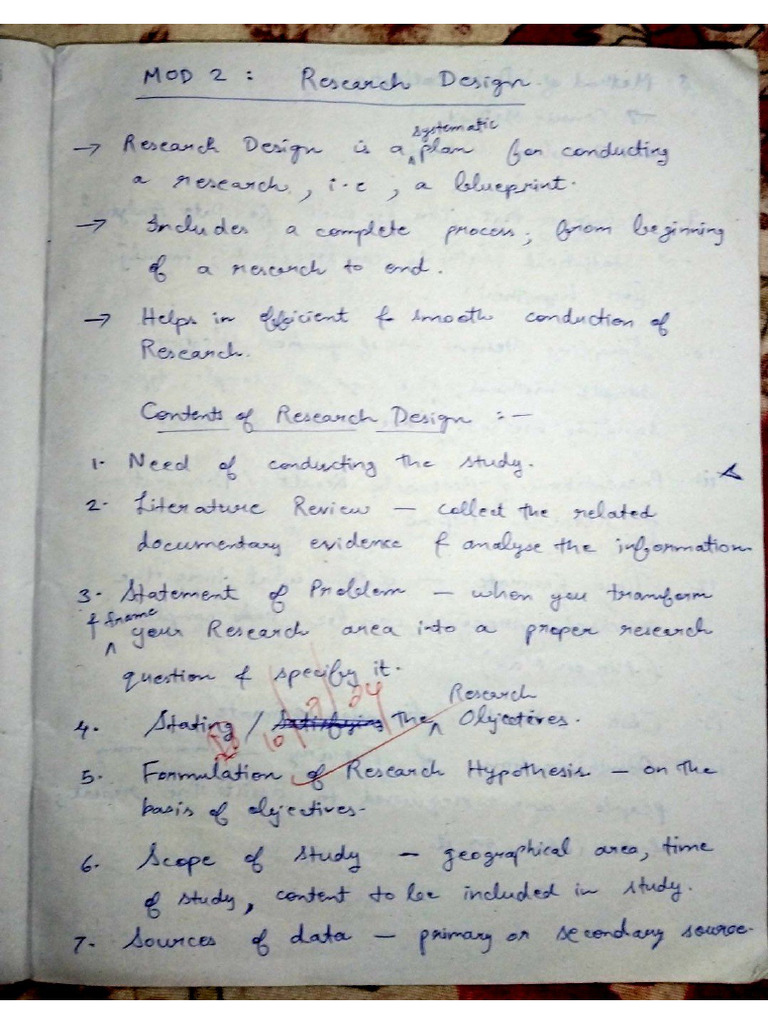 MOD 2 : Research Design
→ Research Design is a systematic plan for conducting
a research, i.e, a blueprint.
→ Includes a complete process, from beginning
of a research to end.
→ Helps in efficient & smooth conduction of
Research.
Contents of Research Design :-
1. Need of conducting the study.
2. Literature Review - collect the related
documentary evidence & analyse the information
3. Statement of Problem - when you transform
& frame your Research area into a proper research
question & specify it.
4. Stating / the Research Objectives.
5. Formulation of Research Hypothesis - on the
basis of objectives.
6. Scope of study - geographical area, time
of study, content to be included in study.
7. Sources of data - primary or secondary source.